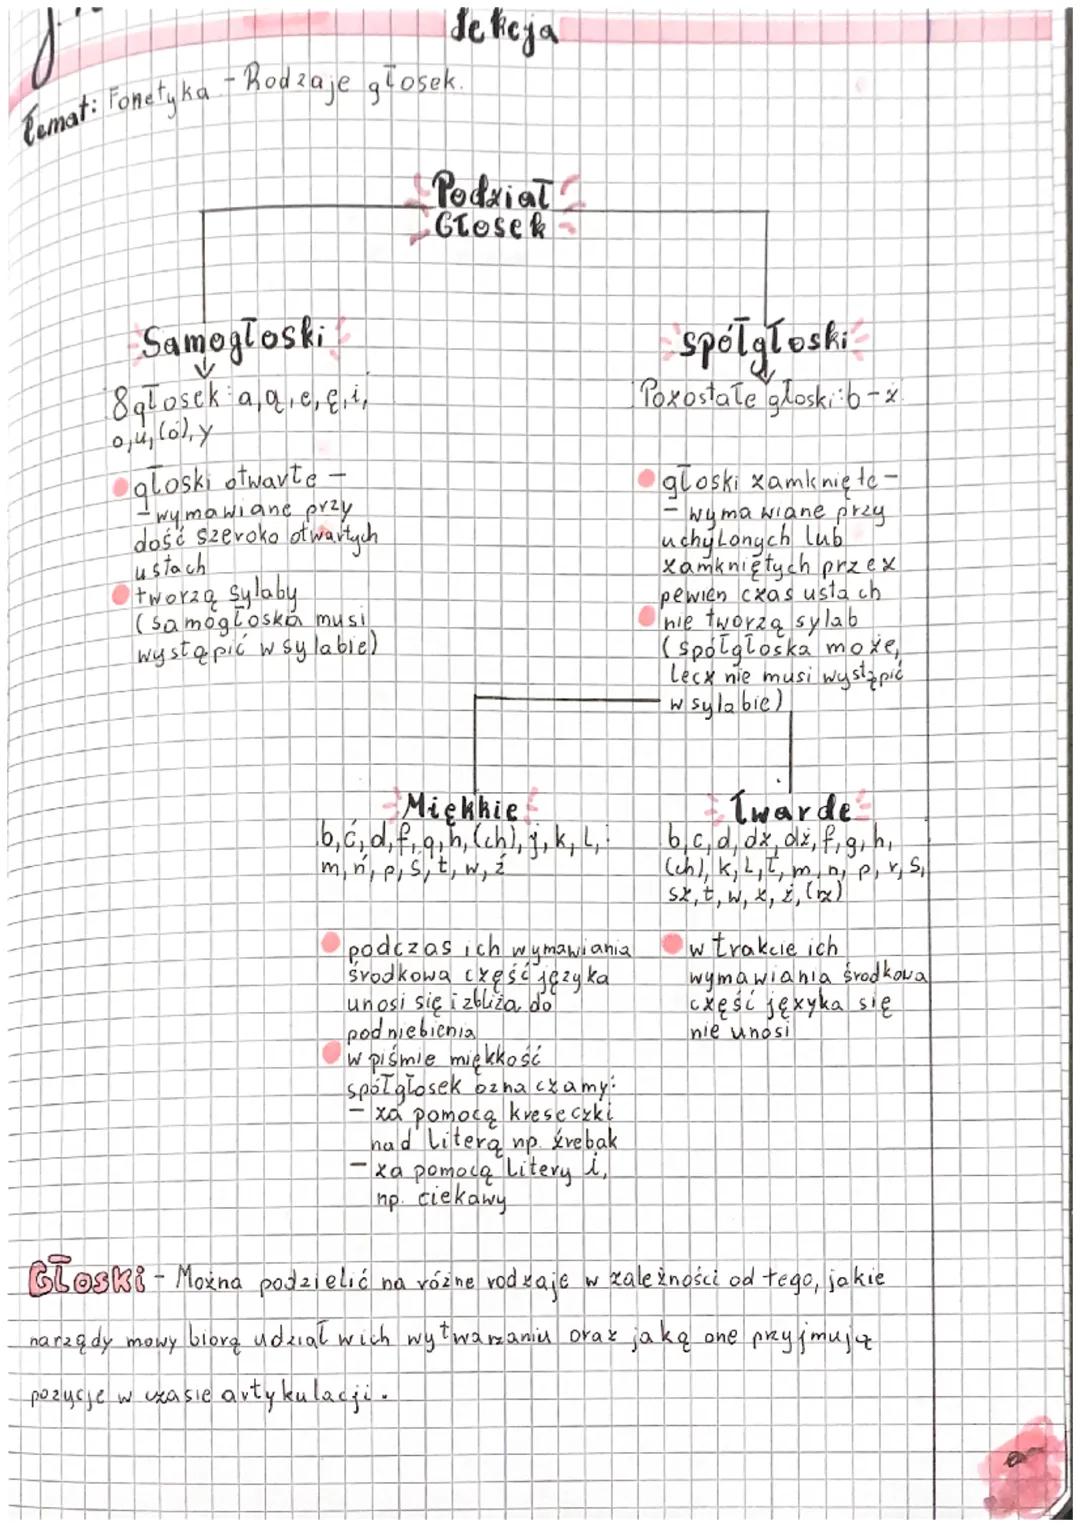 Lekcja
Temat: Fonetyka - Rodzaje głosek.
Podział
Głosek
Samogłoski
8 głosek: a, ą, e, ę, i,
o, u, (ó), y
głoski otwarte -
- wymawiane przy
dość szeroko otwartych
ustach
tworzą sylaby
(samogłoska musi
wystąpić w sylabie)
spółgłoski
Pozostałe głoski: b - ż
głoski zamknięte -
- wymawiane przy
uchylonych lub
zamkniętych przez
pewien czas ustach
nie tworzą sylab
(spółgłoska może,
lecz nie musi wystąpić
w sylabie)
Miękkie
b, ć, d, f, g, h, (ch), j, k, l,
m, ń, p, ś, t, w, ź
podczas ich wymawiania
środkowa część języka
unosi się i zbliża do
podniebienia
w piśmie miękkość
spółgłosek oznaczamy:
- za pomocą kreseczki
nad literą np. źrebak
- za pomocą litery i,
np. ciekawy
Twarde
b, c, d, dz, dż, f, g, h,
(ch), k, L, ł, m, n, p, r, s,
sz, t, w, z, ż, (rz)
w trakcie ich
wymawiania środkowa
część języka się
nie unosi
Głoski - Można podzielić na różne rodzaje w zależności od tego, jakie
narządy mowy biorą udział w ich wytwarzaniu oraz jaką one przyjmują
pozycję w czasie artykulacji.